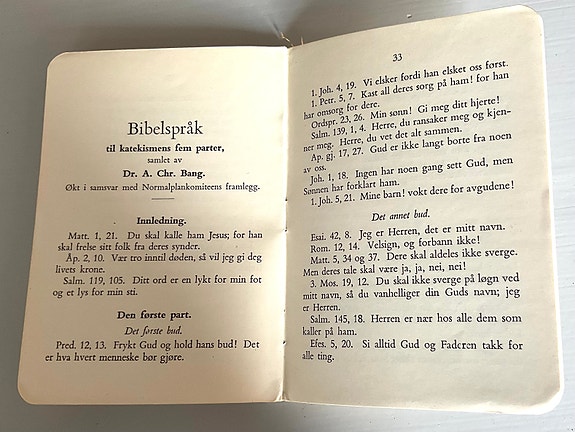 Bibelspråk
til katekismens fem parter,
samlet av
Dr. A. Chr. Bang.
Økt i samsvar med Normalplankomiteens framlegg.
Innledning.
Matt. 1, 21. Du skal kalle ham Jesus; for han
skal frelse sitt folk fra deres synder.
Åp. 2, 10. Vær tro inntil døden, så vil jeg gi deg
livets krone.
Salm. 119, 105. Ditt ord er en lykt for min fot
og et lys for min sti.
Den første part.
Det første bud.
Pred. 12, 13. Frykt Gud og hold hans bud! Det
er hva hvert menneske bør gjøre.
33
1. Joh. 4, 19. Vi elsker fordi han elsket oss først.
1. Petr. 5, 7. Kast all deres sorg på ham! for han
har omsorg for dere.
Ordspr. 23, 26. Min sønn! Gi meg ditt hjerte!
Salm. 139, 1, 4. Herre, du ransaker meg og kjen-
ner meg. Herre, du vet det alt sammen.
Ap. gj. 17, 27. Gud er ikke langt borte fra noen
av oss.
Joh. 1, 18. Ingen har noen gang sett Gud, men
Sønnen har forklart ham.
1. Joh. 5, 21. Mine barn! vokt dere for avgudene!
Det annet bud.
Esai. 42, 8. Jeg er Herren, det er mitt navn.
Rom. 12, 14. Velsign, og forbann ikke!
Matt. 5, 34 og 37. Dere skal aldeles ikke sverge.
Men deres tale skal være ja, ja, nei, nei!
3. Mos. 19, 12. Du skal ikke sverge på løgn ved
mitt navn, så du vanhelliger din Guds navn; jeg
er Herren.
Salm. 145, 18. Herren er nær hos alle dem som
kaller på ham.
Efes. 5, 20. Si alltid Gud og Faderen takk for
alle ting.